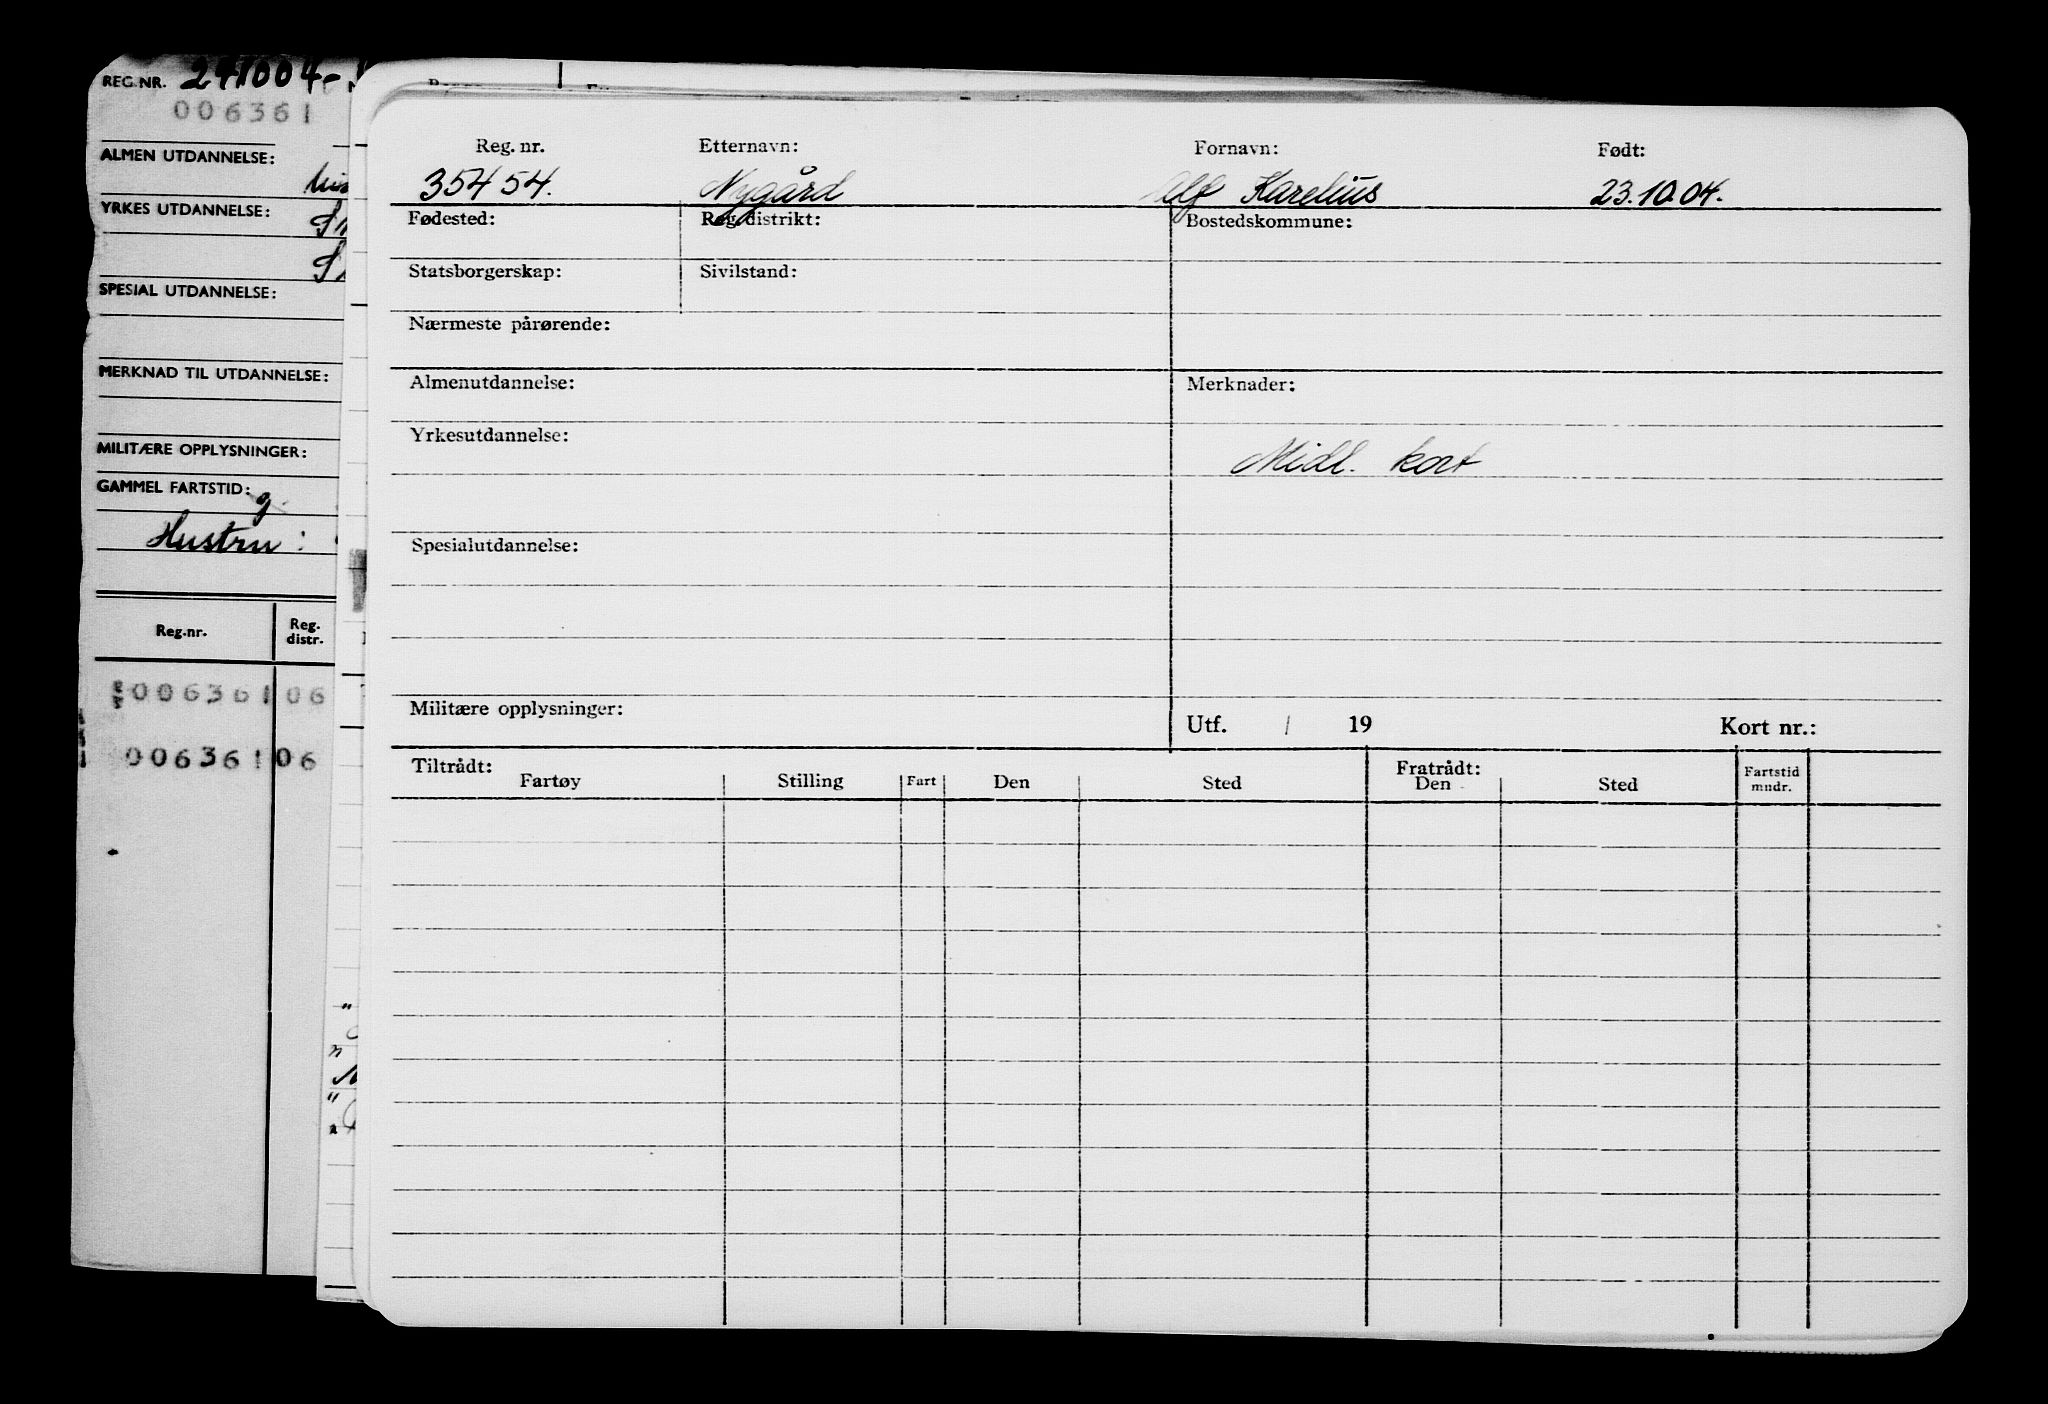 REG.NR.
006361
ALMEN UTDANNELSE:
YRKES UTDANNELSE:
SPESIAL UTDANNELSE:
MERKNAD TIL UTDANNELSE:
MILITÆRE OPPLYSNINGER:
GAMMEL FARTSTID:
Hustru:
Reg.nr. Reg. distr.
006361 06
006361 06
Reg. nr. Etternavn: Fornavn: Født:
35454. Nygård Alf Karelius 23.10.04.
Fødested: Reg.distrikt: Bostedskommune:
Statsborgerskap: Sivilstand:
Nærmeste pårørende:
Almenutdannelse: Merknader:
Yrkesutdannelse:
Midl. kort
Spesialutdannelse:
Militære opplysninger:
Utf. / 19 Kort nr.:
Tiltrådt: Fratrådt:
Fartøy Stilling Fart Den Sted Den Sted Fartstid mndr.